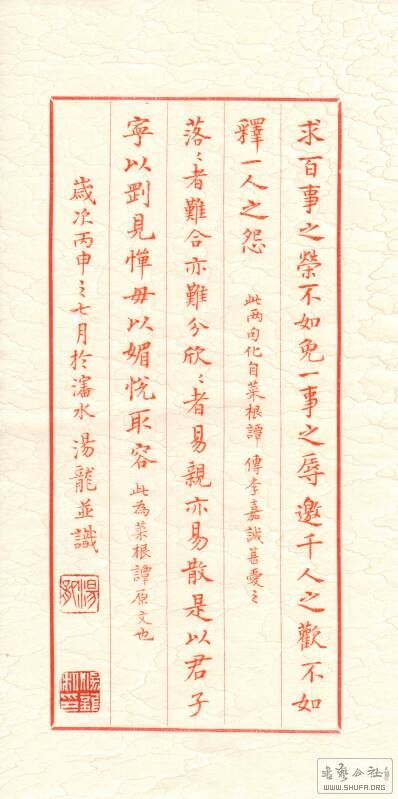 求百事之榮不如免一事之辱邀千人之歡不如
釋一人之怨 此两句化自菜根譚 傳李嘉誠甚愛之
落〻者難合亦難分欣〻者易親亦易散是以君子
寧以剛見憚毋以媚悦取容 此為菜根譚原文也
歲次丙申之七月於瀋水 湯龍並識
WWW.SHUFA.ORG